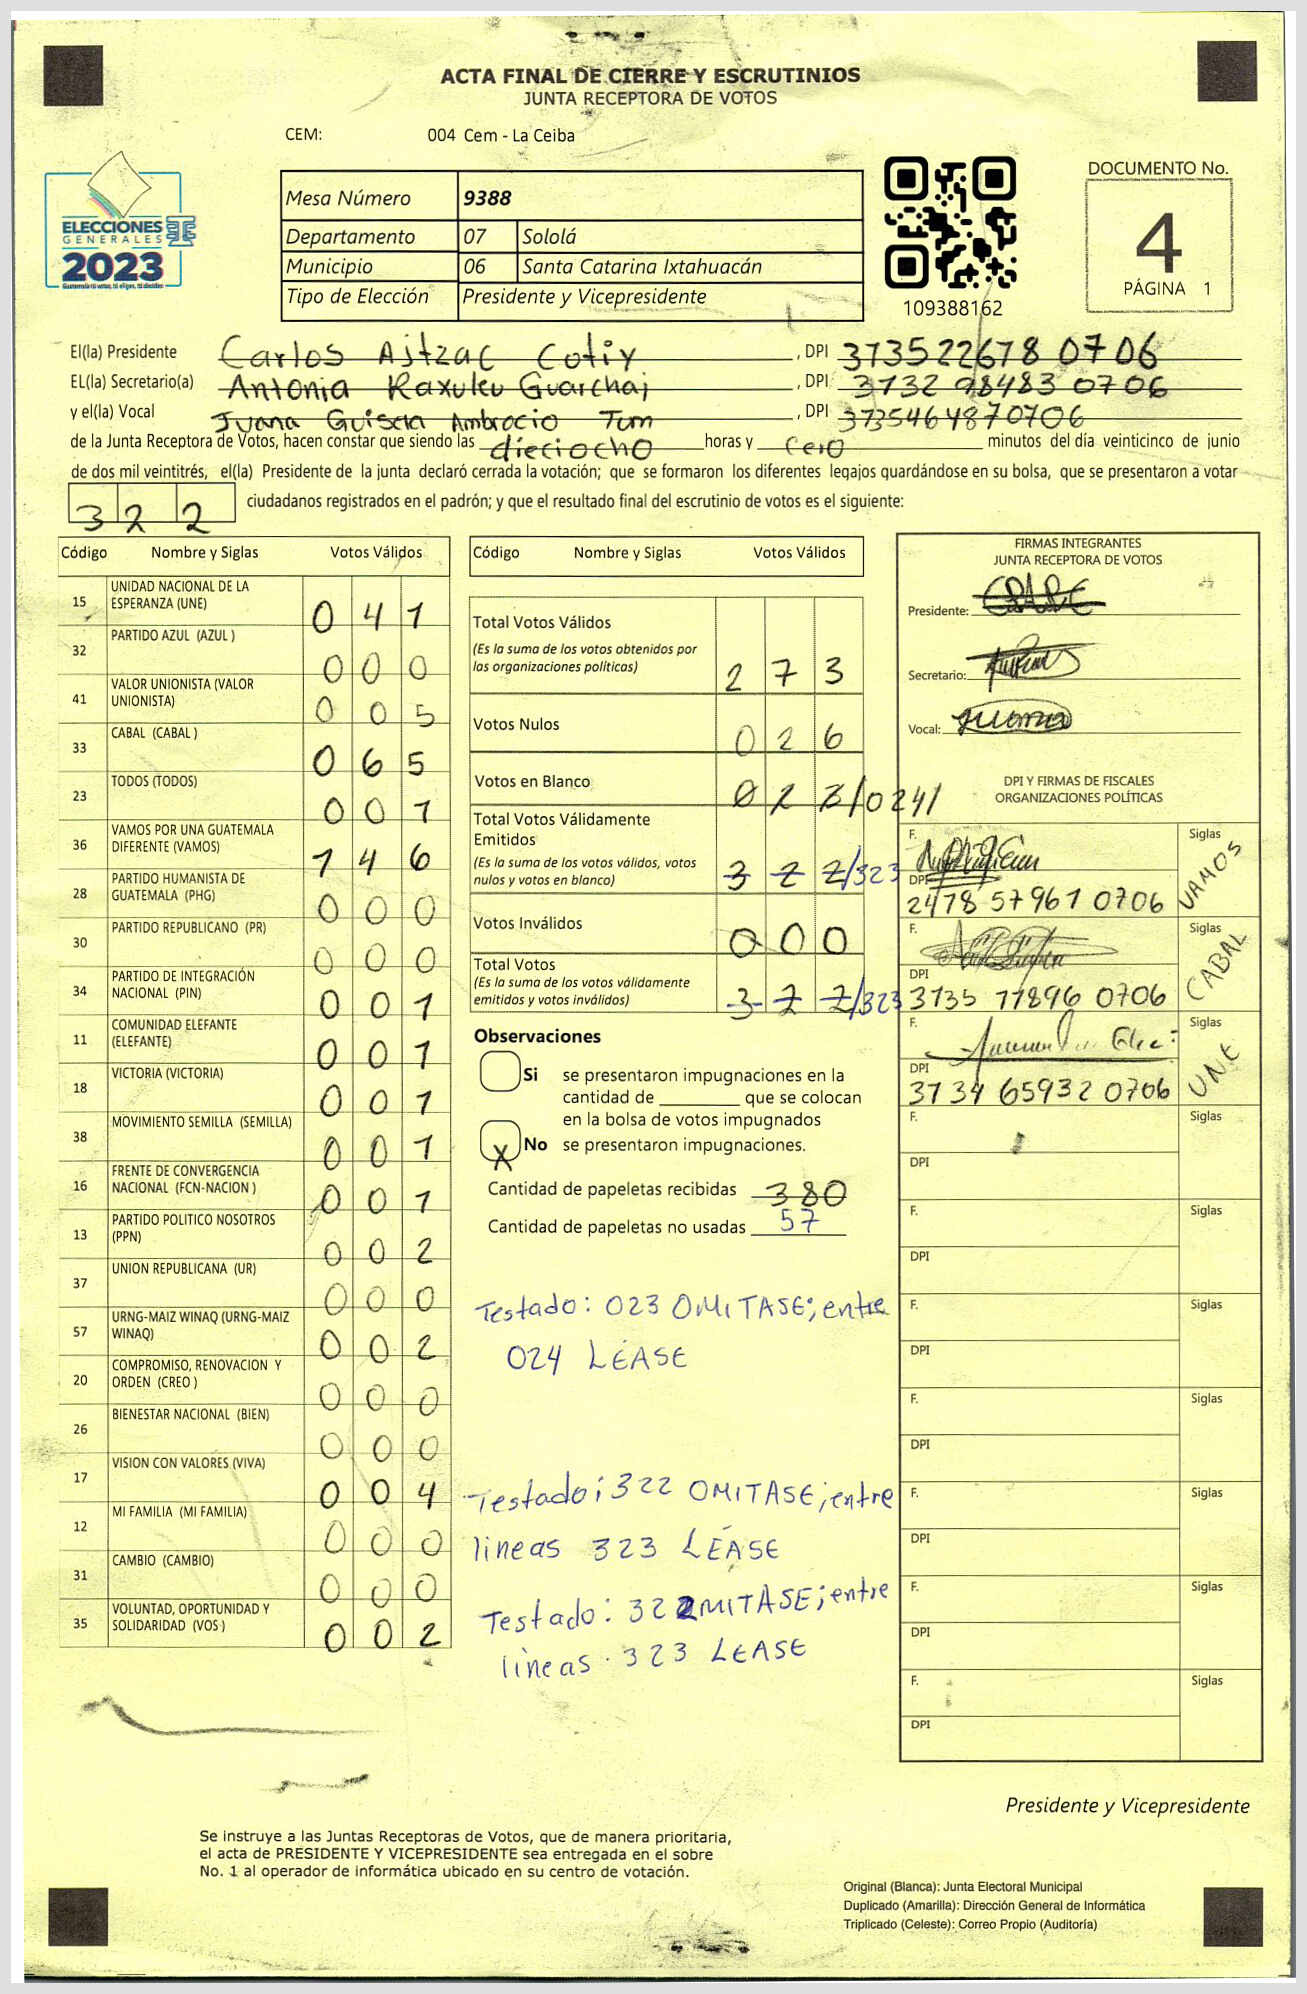 ACTA FINAL DE CIERRE Y ESCRUTINIOS
JUNTA RECEPTORA DE VOTOS
CEM: 004 Cem - La Ceiba
ELECCIONES
GENERALES
2023
Mesa Número 9388
Departamento 07 Sololá
Municipio 06 Santa Catarina Ixtahuacán
Tipo de Elección Presidente y Vicepresidente
109388162
DOCUMENTO No.
4
PÁGINA 1
El(la) Presidente Carlos Ajtzac Cotiy , DPI 373522678 0706
EL(la) Secretario(a) Antonia Raxuleu Guarchaj , DPI 3732 98483 0706
y el(la) Vocal Juana Guiscla Ambrocio Tum , DPI 3735464870706
de la Junta Receptora de Votos, hacen constar que siendo las dieciocho horas y cero minutos del día veinticinco de junio
de dos mil veintitrés, el(la) Presidente de la junta declaró cerrada la votación; que se formaron los diferentes legajos quardándose en su bolsa, que se presentaron a votar
322 ciudadanos registrados en el padrón; y que el resultado final del escrutinio de votos es el siguiente:
Código Nombre y Siglas Votos Válidos
15 UNIDAD NACIONAL DE LA ESPERANZA (UNE) 0 4 1
32 PARTIDO AZUL (AZUL ) 0 0 0
41 VALOR UNIONISTA (VALOR UNIONISTA) 0 0 5
33 CABAL (CABAL ) 0 6 5
23 TODOS (TODOS) 0 0 1
36 VAMOS POR UNA GUATEMALA DIFERENTE (VAMOS) 1 4 6
28 PARTIDO HUMANISTA DE GUATEMALA (PHG) 0 0 0
30 PARTIDO REPUBLICANO (PR) 0 0 0
34 PARTIDO DE INTEGRACIÓN NACIONAL (PIN) 0 0 1
11 COMUNIDAD ELEFANTE (ELEFANTE) 0 0 1
18 VICTORIA (VICTORIA) 0 0 1
38 MOVIMIENTO SEMILLA (SEMILLA) 0 0 1
16 FRENTE DE CONVERGENCIA NACIONAL (FCN-NACION ) 0 0 1
13 PARTIDO POLITICO NOSOTROS (PPN) 0 0 2
37 UNION REPUBLICANA (UR) 0 0 0
57 URNG-MAIZ WINAQ (URNG-MAIZ WINAQ) 0 0 2
20 COMPROMISO, RENOVACION Y ORDEN (CREO ) 0 0 0
26 BIENESTAR NACIONAL (BIEN) 0 0 0
17 VISION CON VALORES (VIVA) 0 0 4
12 MI FAMILIA (MI FAMILIA) 0 0 0
31 CAMBIO (CAMBIO) 0 0 0
35 VOLUNTAD, OPORTUNIDAD Y SOLIDARIDAD (VOS ) 0 0 2
Código Nombre y Siglas Votos Válidos
Total Votos Válidos
(Es la suma de los votos obtenidos por
las organizaciones políticas) 2 7 3
Votos Nulos 0 2 6
Votos en Blanco 0 2 3/024/
Total Votos Válidamente
Emitidos
(Es la suma de los votos válidos, votos
nulos y votos en blanco) 3 2 2/323
Votos Inválidos 0 0 0
Total Votos
(Es la suma de los votos válidamente
emitidos y votos inválidos) 3 2 2/323
Observaciones
Si se presentaron impugnaciones en la
cantidad de ________ que se colocan
en la bolsa de votos impugnados
X No se presentaron impugnaciones.
Cantidad de papeletas recibidas 380
Cantidad de papeletas no usadas 57
Testado: 023 OMITASE; entre
024 LEASE
Testado; 322 OMITASE; entre
lineas 323 LEASE
Testado: 322 OMITASE; entre
lineas 323 LEASE
FIRMAS INTEGRANTES
JUNTA RECEPTORA DE VOTOS
Presidente:
Secretario:
Vocal:
DPI Y FIRMAS DE FISCALES
ORGANIZACIONES POLÍTICAS
F. Siglas VAMOS
DPI 2478 57961 0706
F. Siglas CABAL
DPI 3735 77896 0706
F. Siglas UNE
DPI 3734 65932 0706
F. Siglas
DPI
F. Siglas
DPI
F. Siglas
DPI
F. Siglas
DPI
F. Siglas
DPI
F. Siglas
DPI
F. Siglas
DPI
Presidente y Vicepresidente
Se instruye a las Juntas Receptoras de Votos, que de manera prioritaria,
el acta de PRESIDENTE Y VICEPRESIDENTE sea entregada en el sobre
No. 1 al operador de informática ubicado en su centro de votación.
Original (Blanca): Junta Electoral Municipal
Duplicado (Amarilla): Dirección General de Informática
Triplicado (Celeste): Correo Propio (Auditoría)